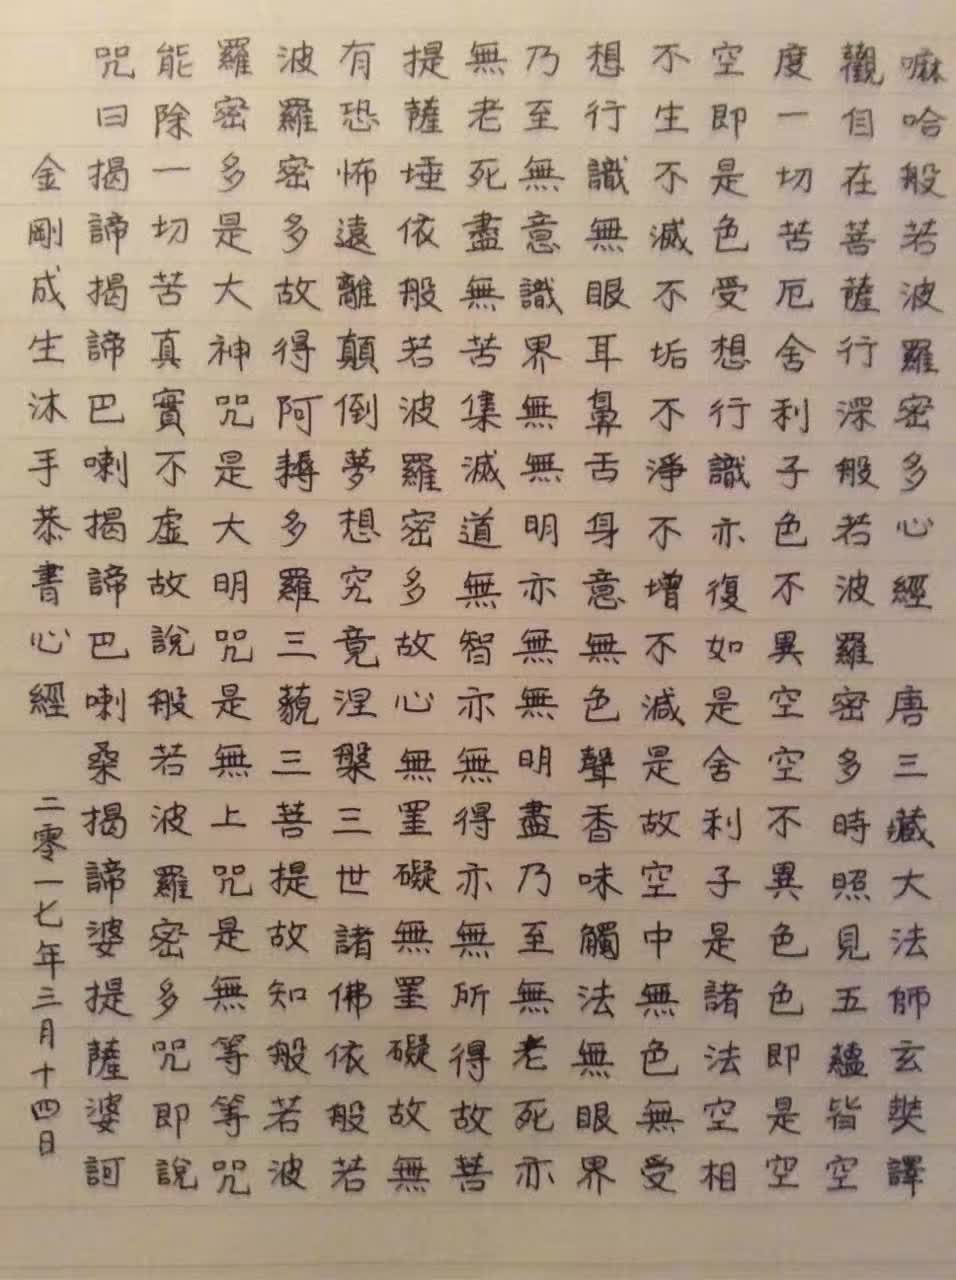 嘛哈般若波羅密多心經 唐三藏大法師玄奘譯
觀自在菩薩行深般若波羅密多時照見五蘊皆空
度一切苦厄舍利子色不異空空不異色色即是空
空即是色受想行識亦復如是舍利子是諸法空相
不生不滅不垢不淨不增不減是故空中無色無受
想行識無眼耳鼻舌身意無色聲香味觸法無眼界
乃至無意識界無無明亦無無明盡乃至無老死亦
無老死盡無苦集滅道無智亦無得亦無所得故菩
提薩埵依般若波羅密多故心無罣礙無罣礙故無
有恐怖遠離顛倒夢想究竟涅槃三世諸佛依般若
波羅密多故得阿耨多羅三藐三菩提故知般若波
羅密多是大神咒是大明咒是無上咒是無等等咒
能除一切苦真實不虛故說般若波羅密多咒即說
咒曰揭諦揭諦巴喇揭諦巴喇桑揭諦婆提薩婆訶
金剛成生沐手恭書心經 二零一七年三月十四日